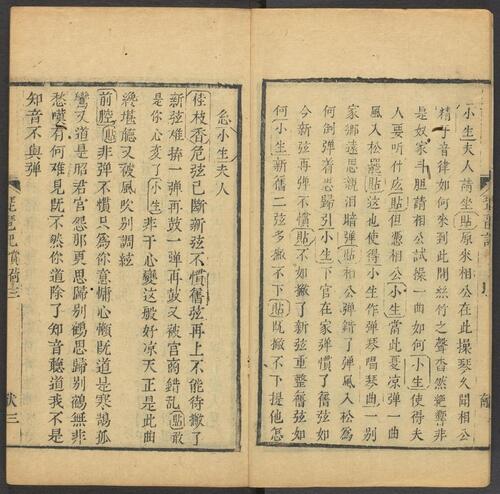 小生夫人請坐貼原來相公在此操琴久聞相公
精于音律如何來到此間絲竹之聲杳然絕響非
是奴家斗胆請相公試操一曲如何小生使得夫
人要听什庅貼但憑相公小生當此夏凉弹一曲
風入松罷貼這也使得小生作弹琴唱琴曲一别
家鄉遠思親泪暗弹貼相公弹錯了弹風入松為
何倒弹着思歸引小生下官在家弹慣了舊弦如
今新弦再弹不慣貼不如撇了新弦重整舊弦如
何小生新舊二弦多撇不下貼既撇不下提他怎
忩小生夫人
桂枝香危弦已斷新弦不慣舊弦再上不能待撇了
新弦難拚一弹再鼓一弹再鼓又被宮商錯乱貼敢
是你心変了小生非于心變這般好凉天正是此曲
纔堪聽又被風吹别調絃
前腔貼非弹不慣只為你意慵心懒既道是寒鴣孤
鸞又道是昭君宫怨那更思歸别鶴思歸别鶴無非
愁嘆有何難見既不然你道除了知音聽道我不是
知音不與弹
琵琶記